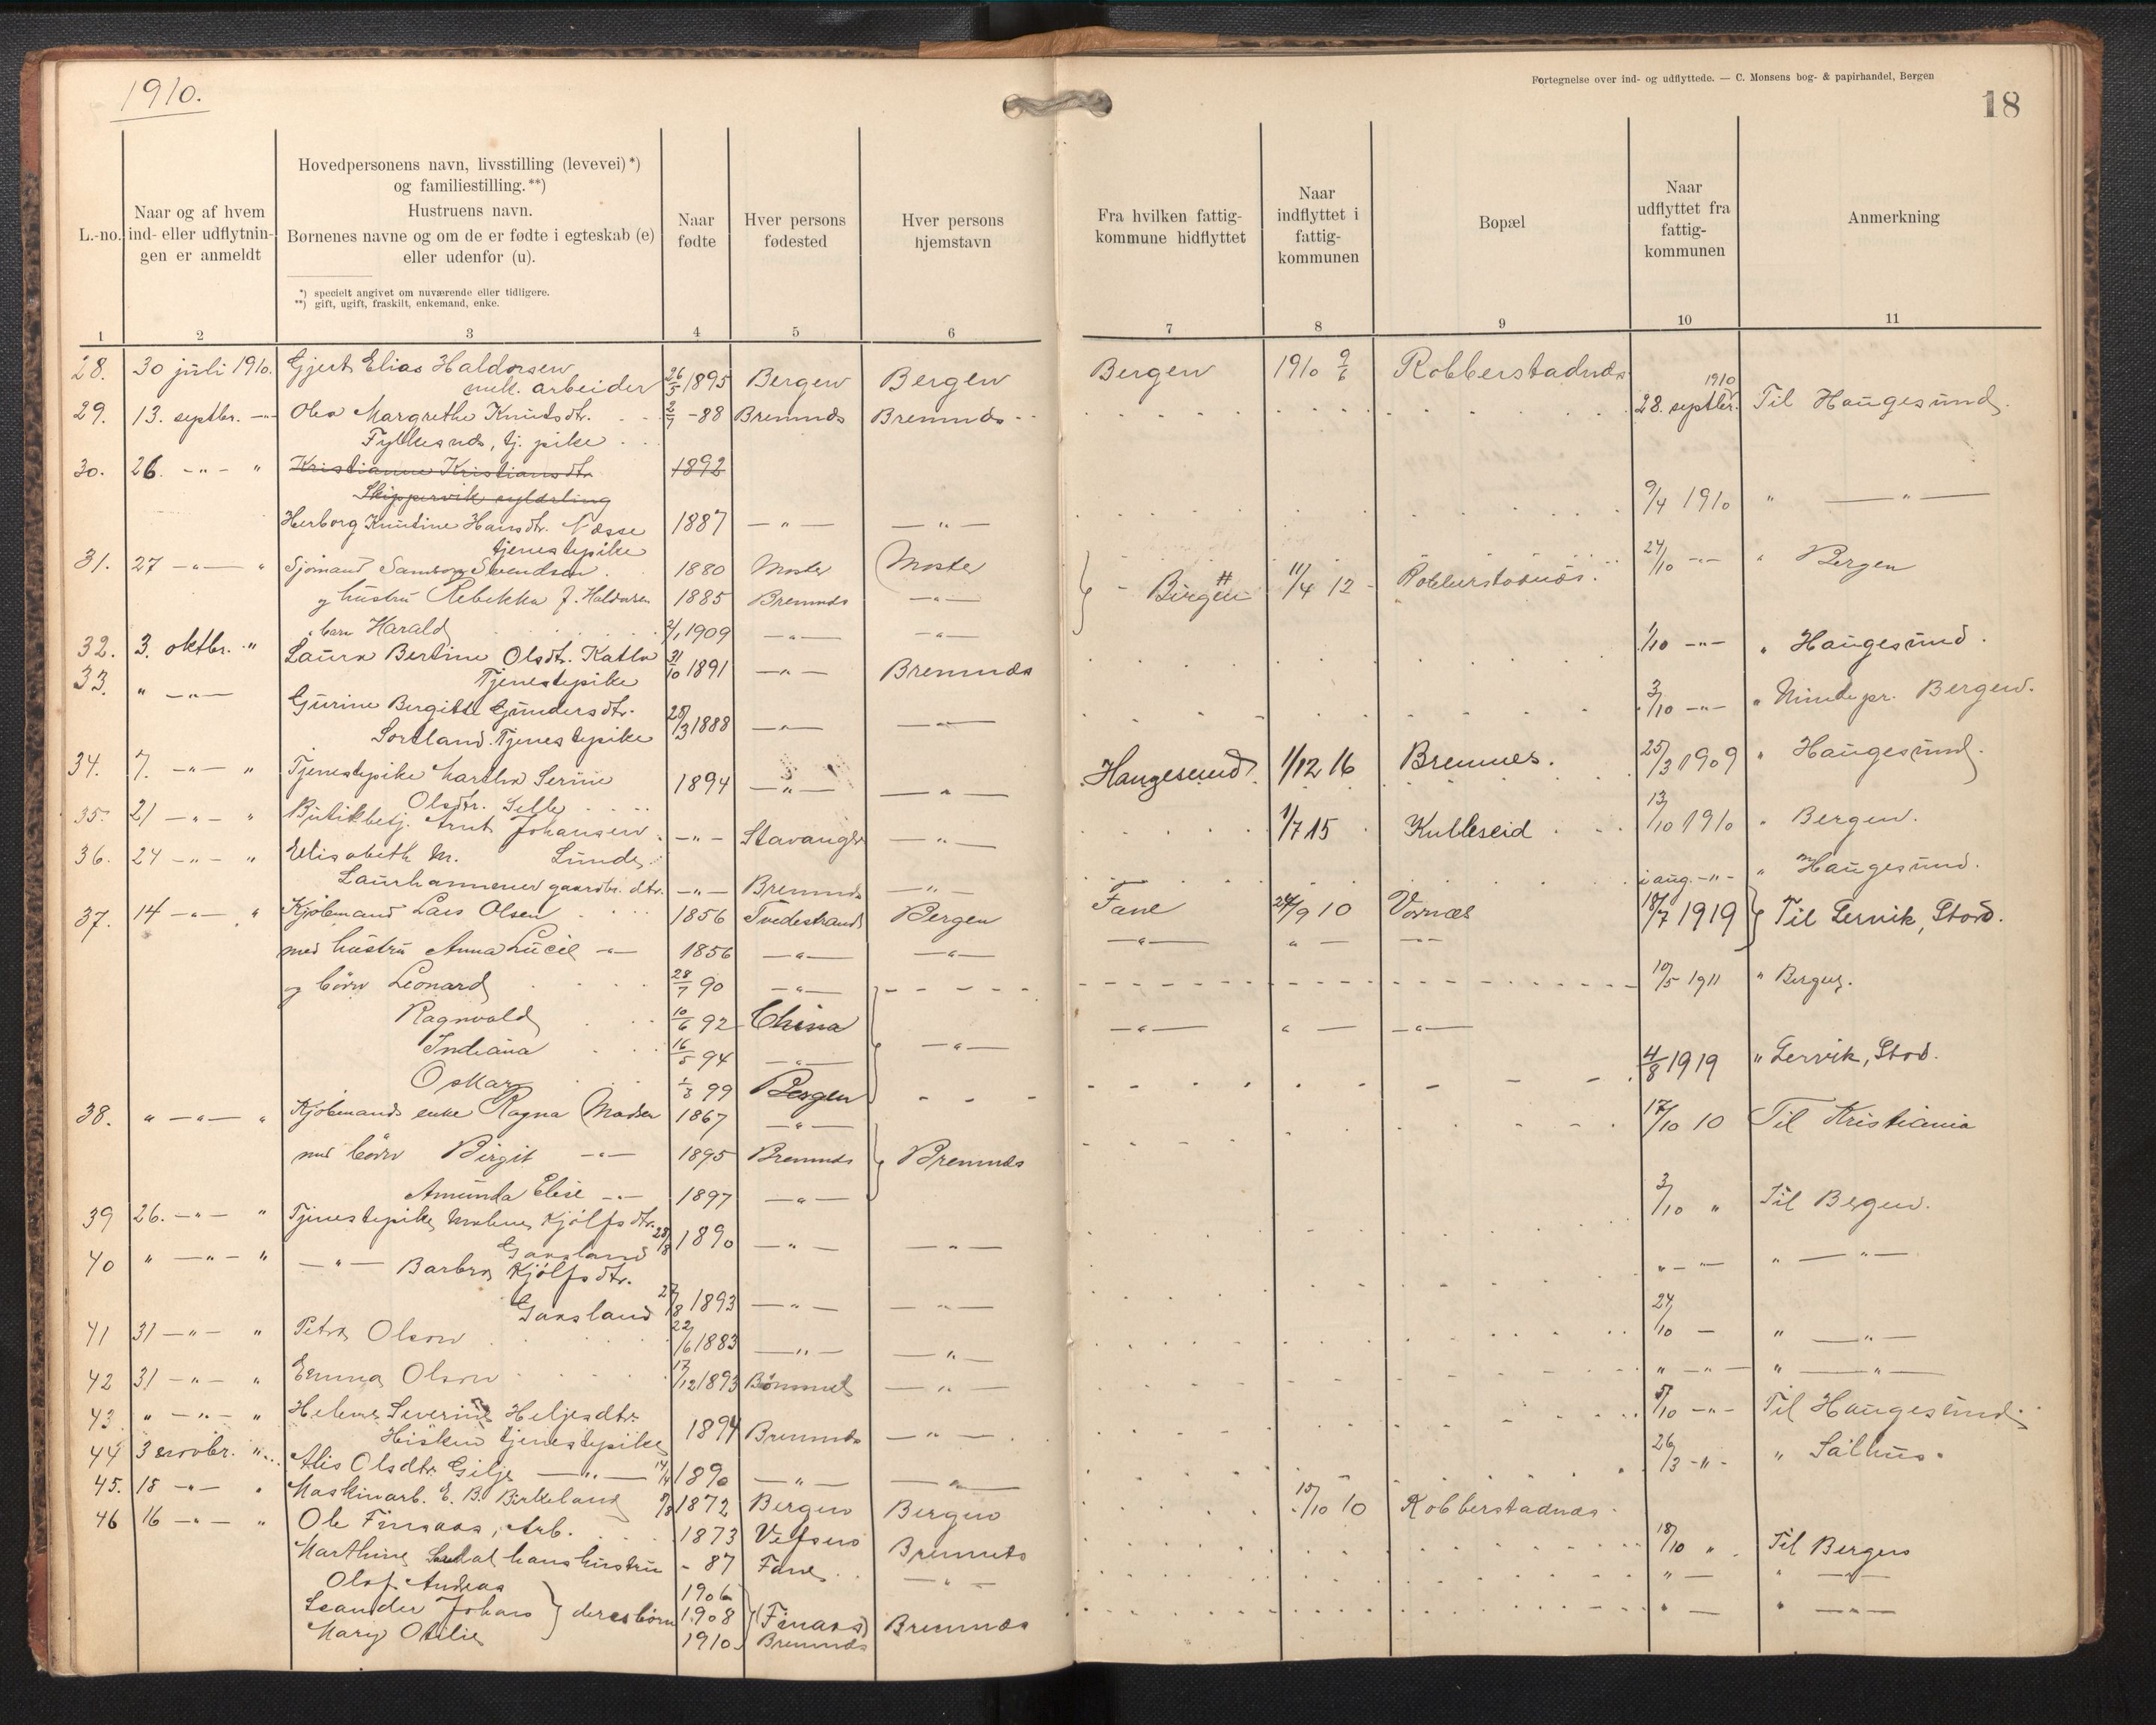 1910.
Fortegnelse over ind- og udflyttede. — C. Monsens bog- & papirhandel, Bergen
18
L.-no.
Naar og af hvem
ind- eller udflytnin-
gen er anmeldt
Hovedpersonens navn, livsstilling (levevei)*)
og familiestilling.**)
Hustruens navn.
Børnenes navne og om de er fødte i egteskab (e)
eller udenfor (u).
*) specielt angivet om nuværende eller tidligere.
**) gift, ugift, fraskilt, enkemand, enke.
Naar
fødte
Hver persons
fødested
Hver persons
hjemstavn
Fra hvilken fattig-
kommune hidflyttet
Naar
indflyttet i
fattig-
kommunen
Bopæl
Naar
udflyttet fra
fattig-
kommunen
Anmerkning
1 2 3 4 5 6 7 8 9 10 11
28. 30 juli 1910. Gjert Elias Haldorsen
mek. arbeider 26/5 1895 Bergen Bergen Bergen 1910 9/6 Robberstadnæs
29. 13. septbr. -"- Olea Margrethe Knutsdtr. 2/7 -88 Bremnæs Bremnæs 1910 28. septbr. Til Haugesund.
Fylkesnæs, tj. pike
30. 26. -"- " Kristianne Kristiansdtr. 1892
Skippervik sylærling
Herborg Knutine Hansdtr. Næsse 1887 -"- -"- 9/4 1910 " -"-
tjenestepike
31. 27 -"- " Sjømand Samson Svendsen 1880 Moster Moster Bergen 11/4 12 Robberstadnæs. 24/10 -"- " Bergen
og hustru Rebekka J. Haldorsen 1885 Bremnæs -"-
" barn Harald 2/1 1909 -"- -"-
32. 3. oktbr. " Laura Bertine Olsdtr. Katla 31/10 1891 -"- Bremnæs 1/10 -"- " Haugesund.
Tjenestepike
33. " -"- Gurine Bergitte Gundersdtr. 3/10 -"- " Minde pr. Bergen.
Sortland. Tjenestepike 25/3 1888 -"- -"-
34. 7. -"- " Tjenestepike Martha Serine 1894 -"- -"- Haugesund 1/12 16 Bremnes. 25/3 1909 " Haugesund.
Olsdtr. Selle
35. 21 -"- " Butikbetj. Arnt Johansen -"- Stavanger -"- 1/7 15 Kulleseid 13/10 1910 " Bergen.
Lunde.
36. 24 -"- " Elisabeth M.
Laurhammer gaardbr. dtr. -"- Bremnæs -"- i aug. -"- " Haugesund.
37. 14 -"- " Kjøbmand Lars Olsen 1856 Tvedestrand Bergen Fane 24/9 10 Vornæs 18/7 1919 Til Lervik, Stord.
med hustru Anna Lucie -"- 1856 -"- -"- -"- " - -"-
og børn Leonard 28/7 90 -"- 10/5 1911 " Bergen.
Ragnvald 10/6 92 China -"- " - -"-
Indiana 16/5 94 -"- -"-
Oskar 1/3 99 Bergen 4/8 1919 " Lervik, Stord.
38. " -"- " Kjøbmands enke Ragna Madsen 1867 -"- 17/10 10 Til Kristiania
med børn Birgit -"- 1895 Bremnæs Bremnæs
Amunda Elise -"- 1897 -"-
39 26. -"- " Tjenestepike Malene Kjølfsdtr. 28/8 1890 -"- -"- 3/10 " Til Bergen.
Gaasland
40 " -"- " -"- Barbra Kjølfsdtr. " - "- " -"-
Gaasland 27/8 1893 -"- -"-
41 31 -"- " Petra Olson 22/6 1883 -"- -"- 24/10 - " -"-
42 31 -"- " Emma Olson 17/12 1893 Bømmel -"- " -"- " -"-
43 " -"- " Helene Severine Heljesdtr.
Hisken tjenestepike 1894 Bremnæs -"- 5/10 -"- Til Haugesund.
44 3 novbr. " Alis Olsdtr. Gilje -"- 14/4 1890 -"- -"- 26/3 -"- " Salhus.
45. 15 -"- " Maskinarb. E. B. Birkeland 9/8 1872 Bergen Bergen 15/10 10 Robberstadnæs.
46 16 -"- " Ole Finsaas, Arb. 1873 Vefsen Bremnæs 18/10 " Til Bergen
Marthine hans hustru - 87 Fane -"- " - " -"-
Olaf Andreas 1906
Leander Johans } deres børn 1908 (Finaas) Bremnæs " - " -"-
Mary Otilie 1910 Bremnæs